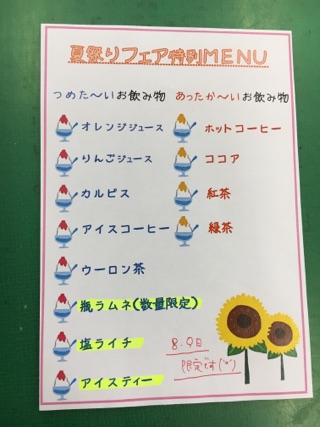 夏祭りフェア特別MENU
つめた〜いお飲み物
オレンジジュース
りんごジュース
カルピス
アイスコーヒー
ウーロン茶
瓶ラムネ(数量限定)
塩ライチ
アイスティー
あったか〜いお飲み物
ホットコーヒー
ココア
紅茶
緑茶
8.9日
限定です(^o^)